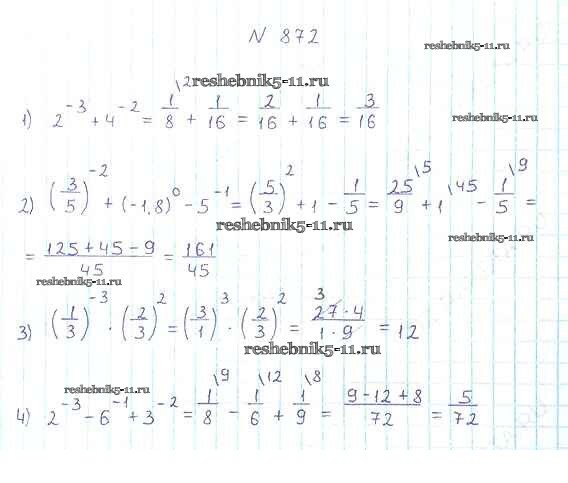 N 872
reshebnik5-11.ru
reshebnik5-11.ru
1) 2^{-3} + 4^{-2} = \frac{1}{8}^{\2} + \frac{1}{16} = \frac{2}{16} + \frac{1}{16} = \frac{3}{16}
reshebnik5-11.ru
2) (\frac{3}{5})^{-2} + (-1,8)^0 - 5^{-1} = (\frac{5}{3})^2 + 1 - \frac{1}{5} = \frac{25}{9}^{\5} + 1^{\45} - \frac{1}{5}^{\9} =
reshebnik5-11.ru
reshebnik5-11.ru
= \frac{125 + 45 - 9}{45} = \frac{161}{45}
reshebnik5-11.ru
3) (\frac{1}{3})^{-3} · (\frac{2}{3})^2 = (\frac{3}{1})^3 · (\frac{2}{3})^2 = \frac{27^3 · 4}{1 · 9} = 12
reshebnik5-11.ru
reshebnik5-11.ru
4) 2^{-3} - 6^{-1} + 3^{-2} = \frac{1}{8}^{\9} - \frac{1}{6}^{\12} + \frac{1}{9}^{\8} = \frac{9 - 12 + 8}{72} = \frac{5}{72}